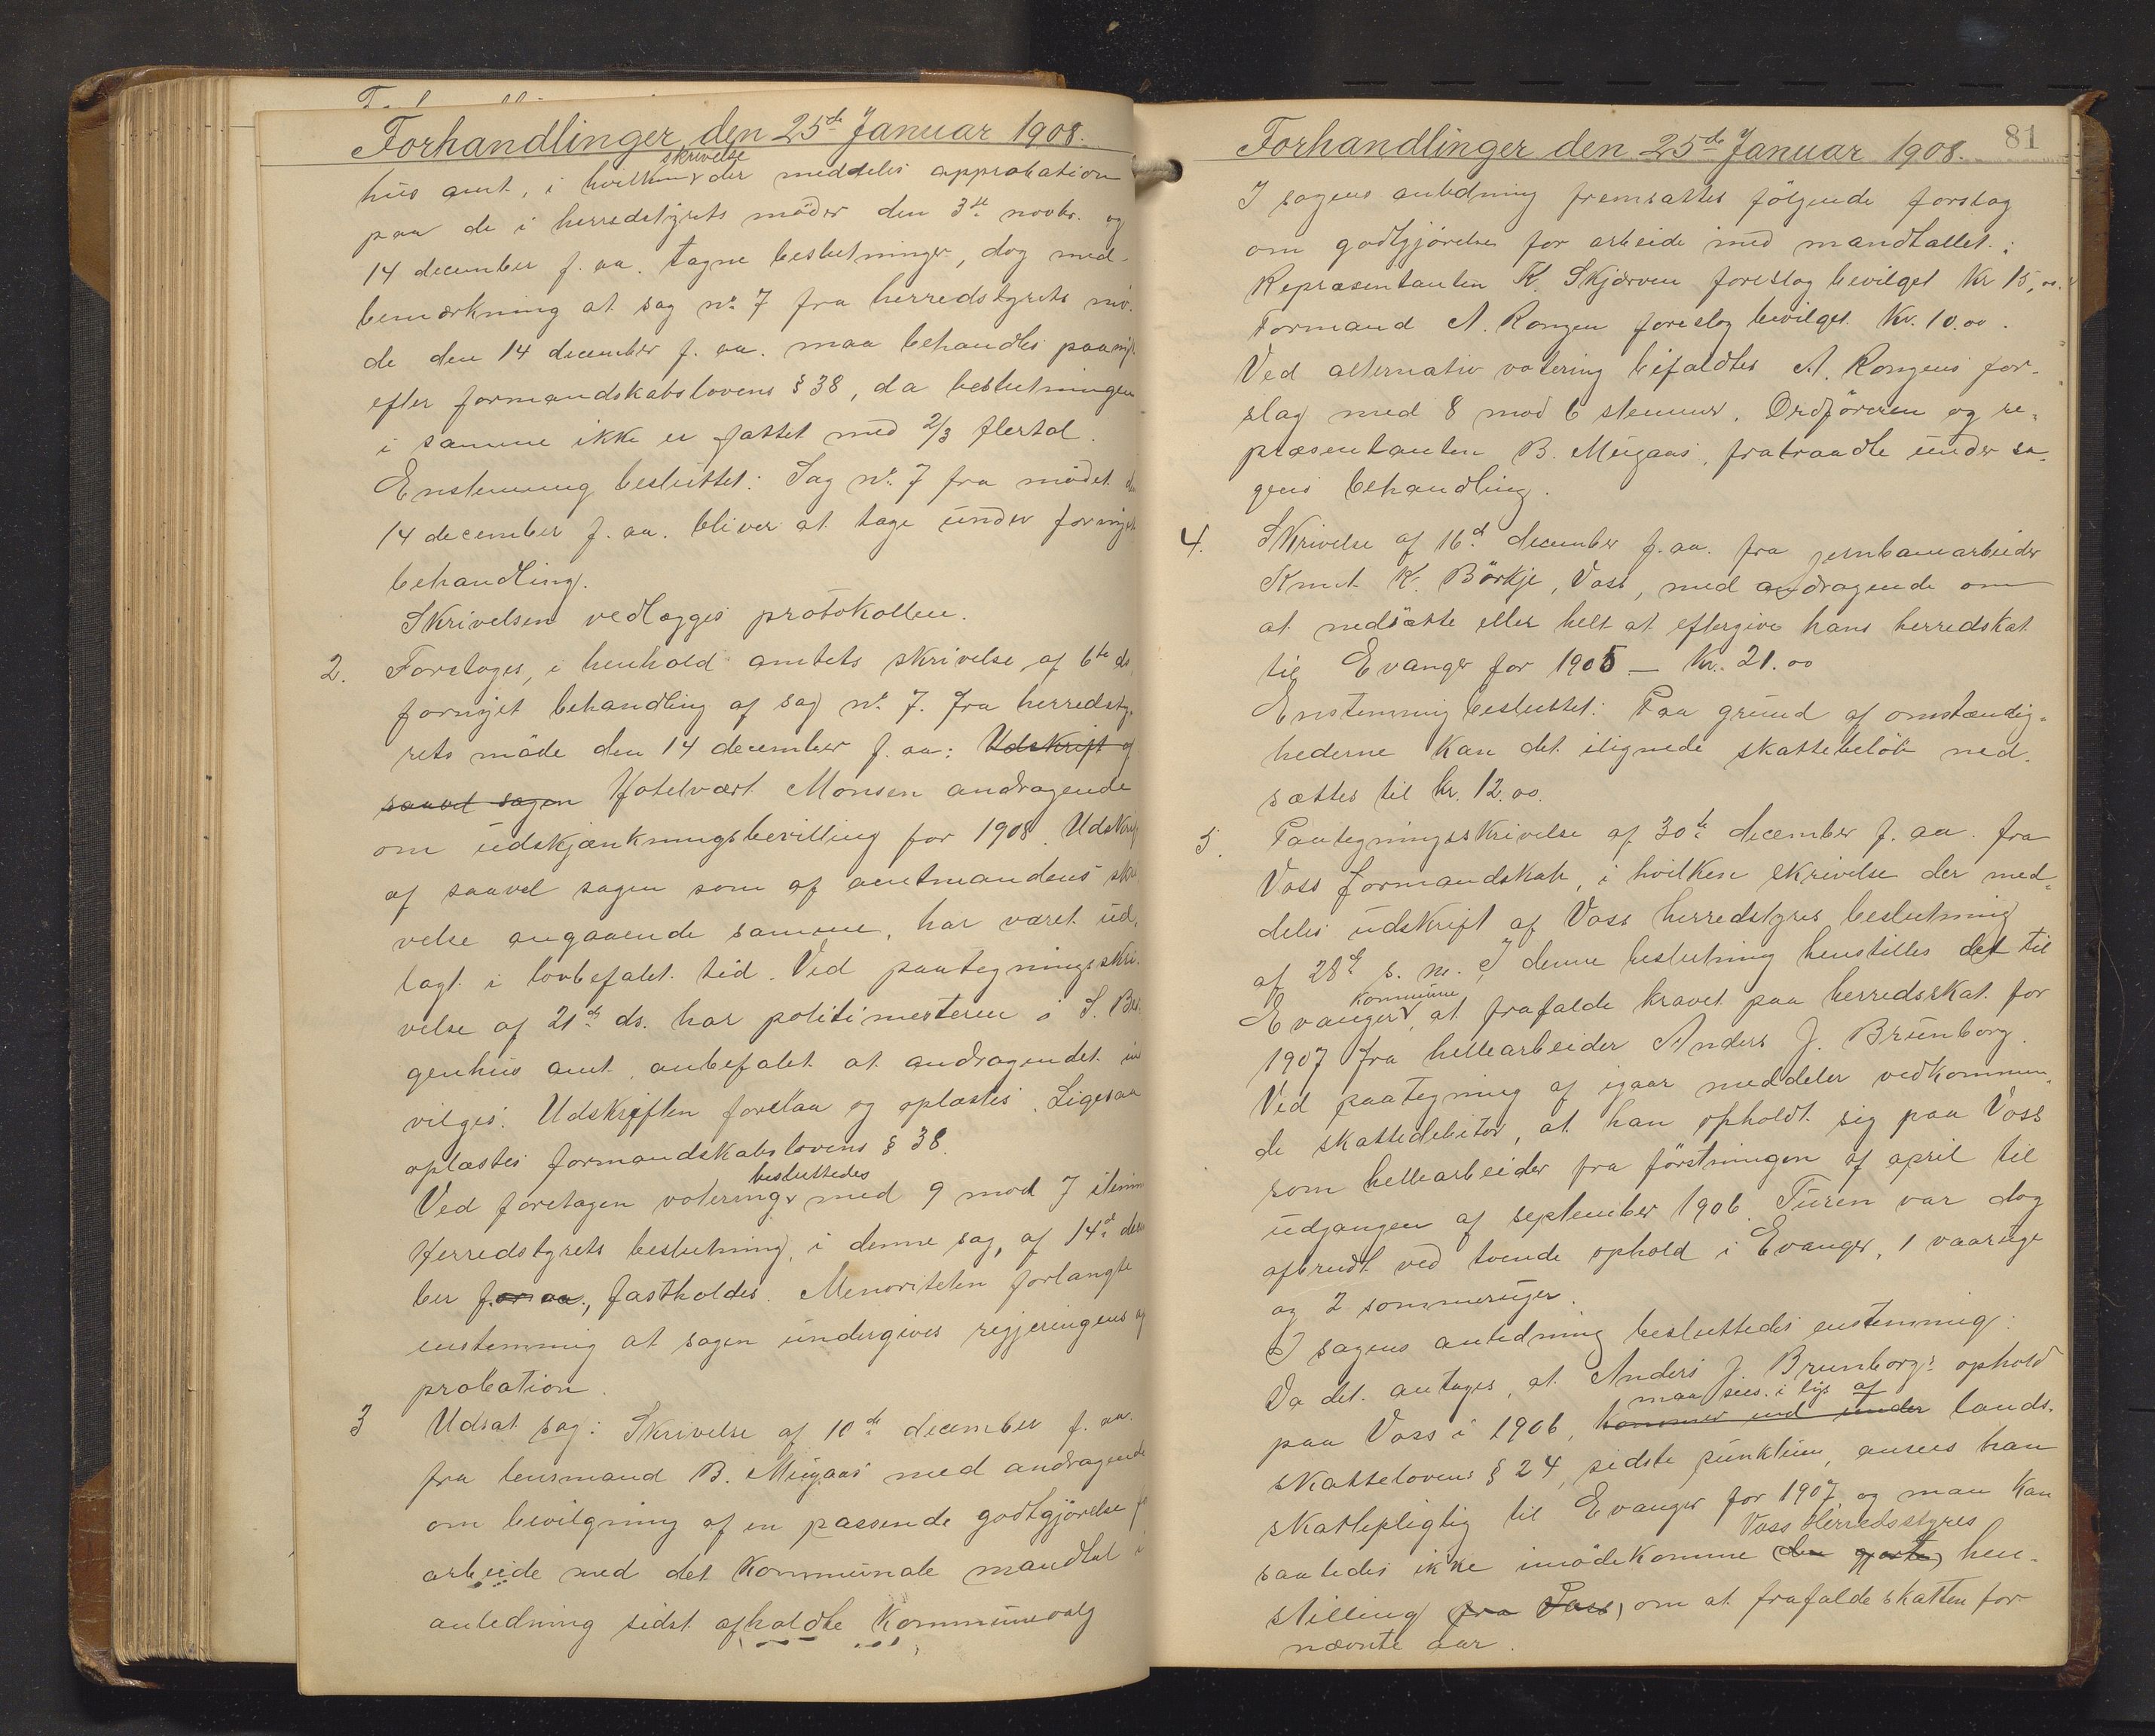 Forhandlinger den 25de Januar 1908.
skrivelse
hus amt, i hvilken der meddeles approbation
paa de i herredstyrets möder den 3de novbr. og
14 december f. aa. tagne beslutninger, dog med
bemærkning at sag nr. 7 fra herredstyrets mö-
de den 14 december f. aa. maa behandles paany
efter formandskabslovens § 38, da beslutningen
i samme ikke er fattet med 2/3 flertal.
Enstemmig besluttet: Sag nr. 7 fra mödet
14 december f. aa. bliver at tage under fornyet
behandling.
Skrivelsen vedlægges protokollen.
2. Foretoges, i henhold amtets skrivelse af 6te ds
fornyet behandling af sag nr. 7. fra herredsty-
rets möde den 14 december f. aa: Udskrift af
saavel sagen Hotelvært Monsen andragende
om udskjænkningsbevilling for 1908. Udskrift
af saavel sagen som af amtmandens skri
velse angaaende samme, har været ud-
lagt i lovbefalet tid. Ved paategningsskri-
velse af 21de ds. har politimesteren i S. Ber
genhus amt anbefalet at andragendet ind
vilges. Udskriften forelaa og oplæstes. Ligesaa
oplæstes formandskabslovens § 38.
besluttedes
Ved foretagen votering med 9 mod 7 stemm
Herredstyrets beslutning, i denne sag, af 14de decem
ber f. aa., fastholdes. Menoriteten forlangte
enstemmig at sagen undergives regjeringens ap
probation.
3 Udsat sag: Skrivelse af 10de december f. aa.
fra lensmand B. Mugaas med andragende
om bevilgning af en passende godtgjörelse for
arbeide med det kommunale mandtal i
anledning sidst afholdte kommunevalg
Forhandlinger den 25de Januar 1908. 81
I sagens anledning fremsattes fölgende forslag
om godtgjörelse for arbeide med mandtallet:
Repræsentanten K. Skjerven foreslog bevilget kr 15,00.
Formand A. Rongen foreslog bevilget kr. 10.00.
Ved alternativ votering bifaldtes A. Rongens for-
slag med 8 mod 6 stemmer. Ordföreren og re-
præsentanten B. Mugaas, fratraadte under sa-
gens behandling.
4. Skrivelse af 16de december f. aa. fra jernbanearbeider
Knut K. Börkje, Voss, med andragende om
at nedsætte eller helt at eftergive hans herredskat
til Evanger for 1905 – kr. 21.00
Enstemmig besluttet: Paa grund af omstændig-
hederne kan det ilignede skattebelöb ned-
sættes til kr. 12.00.
5. Paategningsskrivelse af 30te december f. aa. fra
Voss formandskab, i hvilken skrivelse der med-
deles udskrift af Voss herredstyres beslutning
af 28de s. m. I denne beslutning henstilles det til
kommune
Evanger, at frafalde kravet paa herredsskat for
1907 fra hellearbeider Anders J. Brunborg.
Ved paategning af igaar meddeler vedkommen-
de skattedebitor, at han opholdt sig paa Voss
som hellearbeider fra förstningen af april til
udgangen af september 1906. Turen var dog
afbrudt ved tvende ophold i Evanger, 1 vaaruge
og 2 sommeruger.
I sagens anledning besluttedes enstemmig:
Da det antages, at Anders J. Brunborgs ophold
maa sees i lys af
paa Voss i 1906, kommer ind under lands-
skattelovens § 24, sidste punktum, ansees han
skattepligtig til Evanger for 1907 og man kan
Voss Herredsstyres
saaledes ikke imödekomme den gjorte hen-
stilling fra Voss, om at frafalde skatten for
nævnte aar.